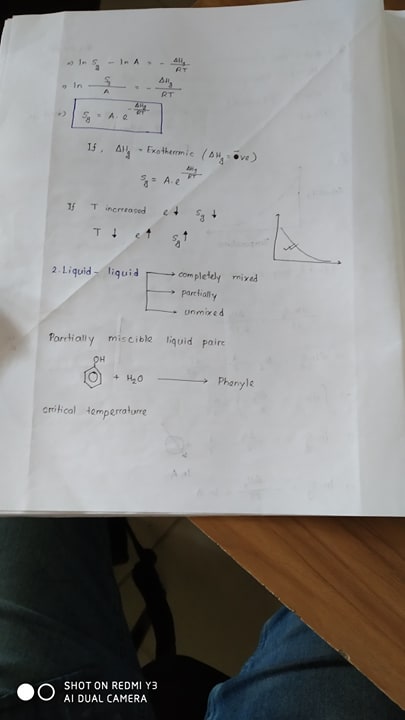 => ln Sg - ln A = - ΔHg/RT
=> ln Sg/A = - ΔHg/RT
=> Sg = A. e^-ΔHg/RT
If, ΔHg - Exothermic (ΔHg = -ve)
Sg = A. e^ΔHg/RT
If T increased e ↓ Sg ↓
T ↓ e ↑ Sg ↑
2. Liquid - liquid → completely mixed
→ partially
→ unmixed
Partially miscible liquid pairs
OH
+ H2O → Phenyle
critical temperrature
SHOT ON REDMI Y3
AI DUAL CAMERA